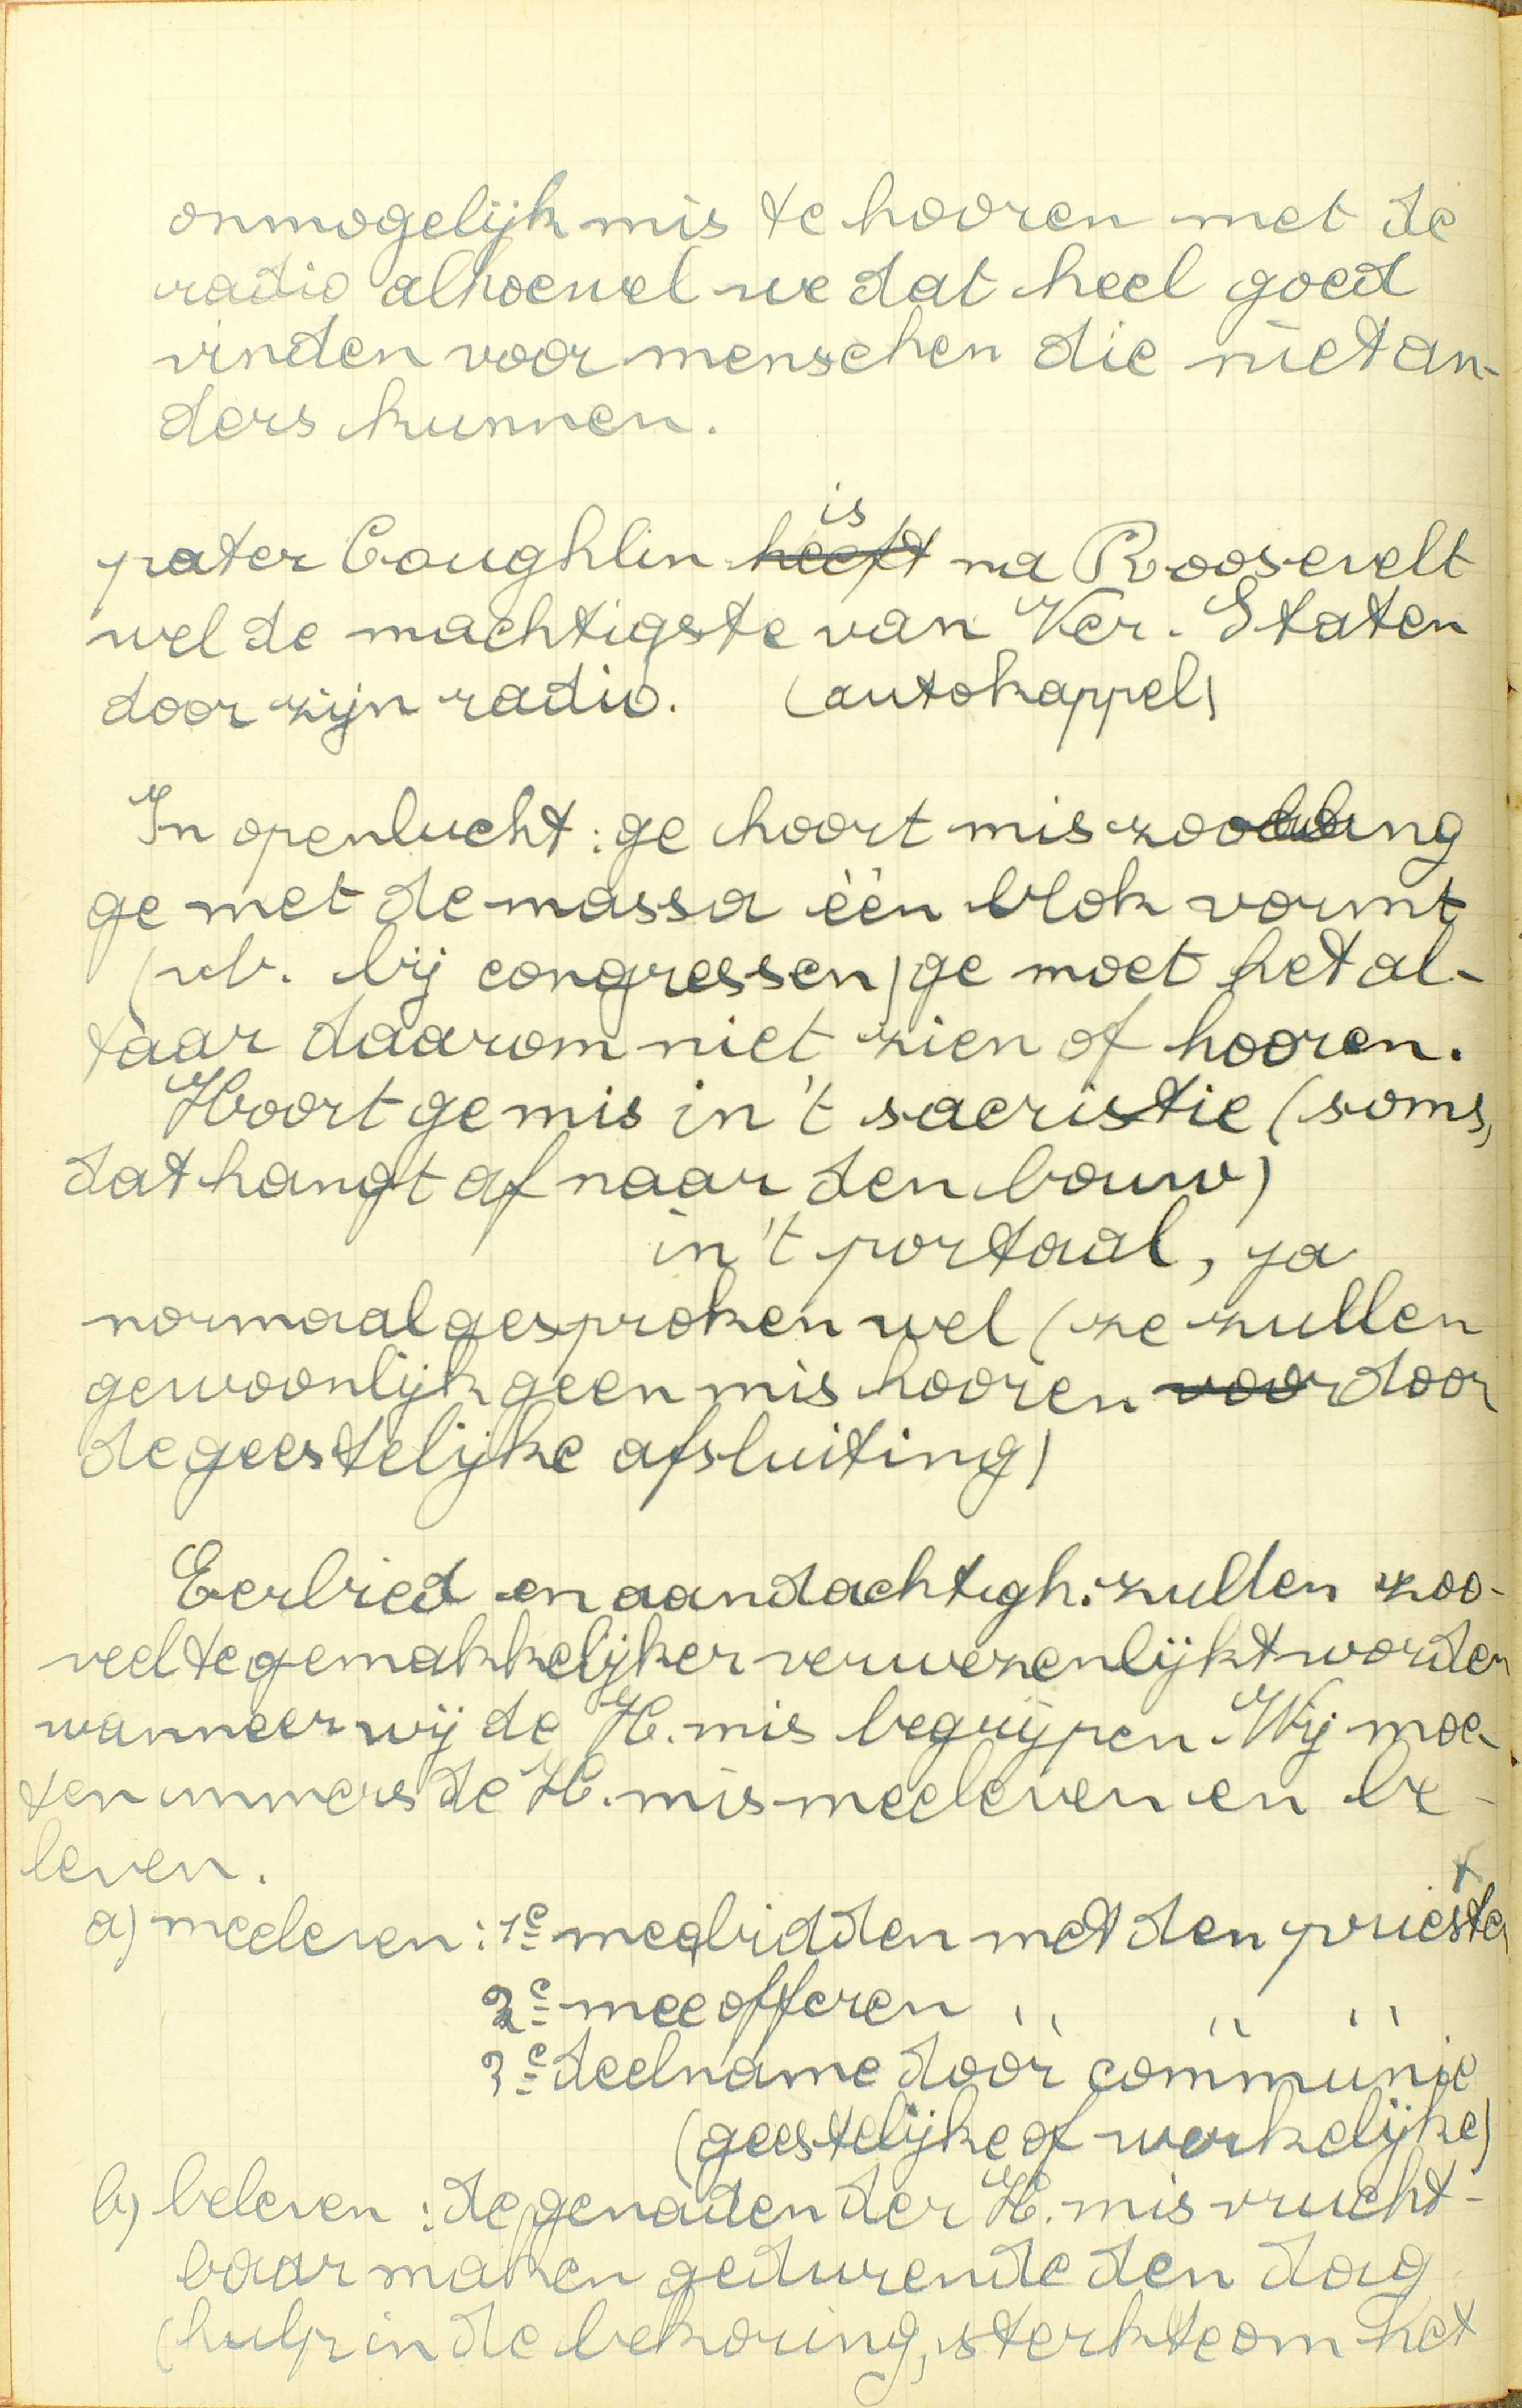 onmogelijk mis te hooren met de
radio alhoewel we dat heel goed
vinden voor menschen die niet an-
ders kunnen.
is
pater Coughlin heeft na Roosevelt
wel de machtigste van Ver. Staten
door zijn radio. (autokappel)
In openlucht: ge hoort mis zoolang
ge met de massa één blok vormt
(vb. bij congressen) ge moet het al-
taar daarom niet zien of hooren.
Hoort ge mis in 't sacristie (soms,
dat hangt af naar den bouw)
in 't portaal, ja
normaal gesproken wel (ze zullen
gewoonlijk geen mis hooren voor door
de geestelijke afsluiting)
Eerbied en aandachtigh. zullen zoo-
veel te gemakkelijker verwezenlijkt worden
wanneer wij de H. mis begrijpen. Wij moe-
ten immers de H. mis meeleven en be-
leven.
a) meeleven: 1e meebidden met den priester
2e meeofferen " " "
3e deelname door communie
(geestelijke of werkelijke)
b) beleven: de genaden der H. mis vrucht-
baar maken gedurende den dag
(hulp in de bekoring, sterkte om het